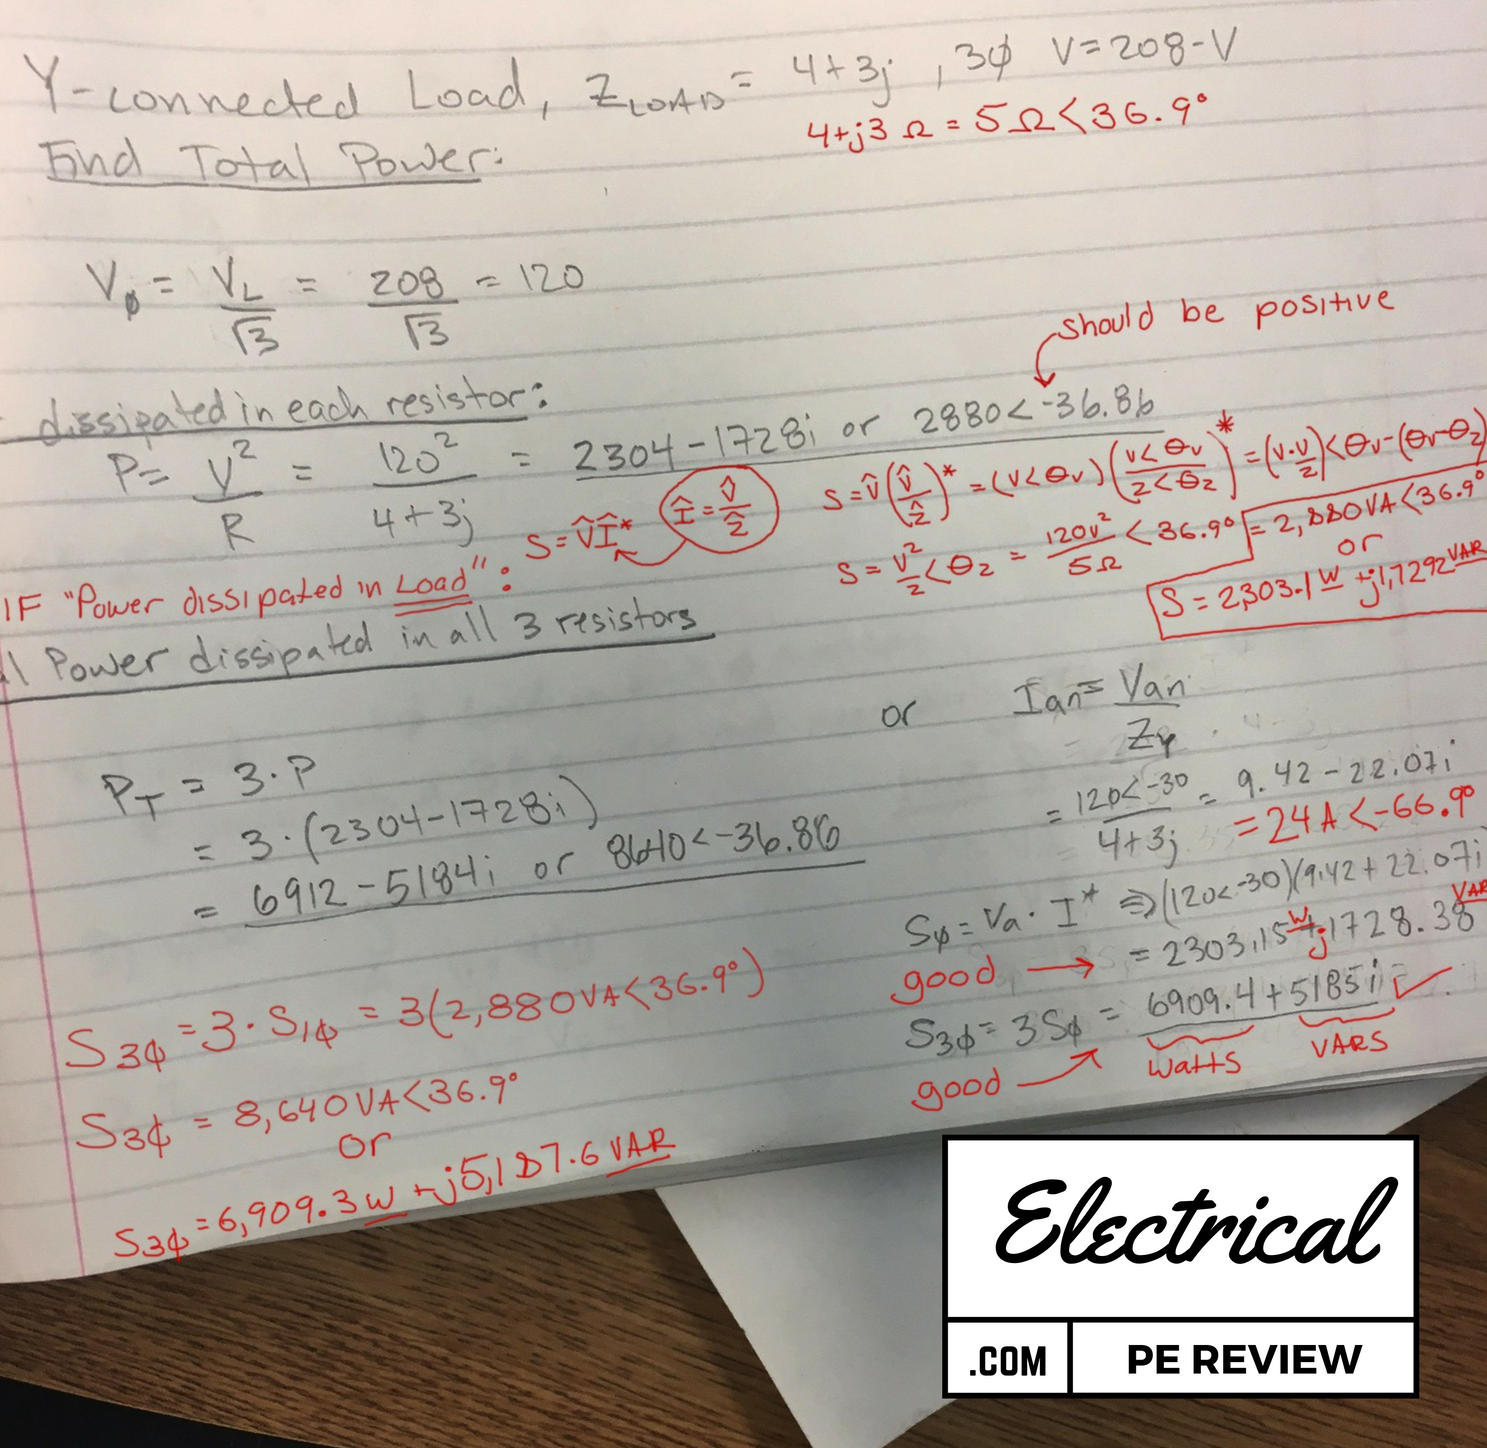 Y-connected Load, ZLOAD = 4+3j , 3ϕ V=208-V
4+j3 Ω = 5Ω<36.9°
Find Total Power:
Vϕ = VL/√3 = 208/√3 = 120
should be positive
dissipated in each resistor:
P = V²/R = 120²/4+3j = 2304-1728i or 2880<-36.86
S = V̂Î* Î = V̂/Ẑ
S = V̂(V̂/Ẑ)* = (V<θv)(V<θv/Z<θz)* = (V·V/Z)<θv-(θv-θz)
S = V²/Z<θz = 120V²/5Ω <36.9° = 2,880VA<36.9°
or
S = 2,303.1W +j1,7292VAR
IF "Power dissipated in Load":
l Power dissipated in all 3 resistors
PT = 3·P
= 3·(2304-1728i)
= 6912-5184i or 8640<-36.86
or Ian = Van/ZY
= 120<-30/4+3j = 9.42-22.07i
= 24A<-66.9°
Sϕ = Va · I* ⇒ (120<-30)(9.42+22.07i
good → = 2303.15W+j1728.38 VAR
S3ϕ = 3Sϕ = 6909.4+5185i ✓
good
Watts VARS
S3ϕ = 3·S1ϕ = 3(2,880VA<36.9°)
S3ϕ = 8,640VA<36.9°
or
S3ϕ = 6,909.3W +j5,187.6 VAR
Electrical
.COM PE REVIEW